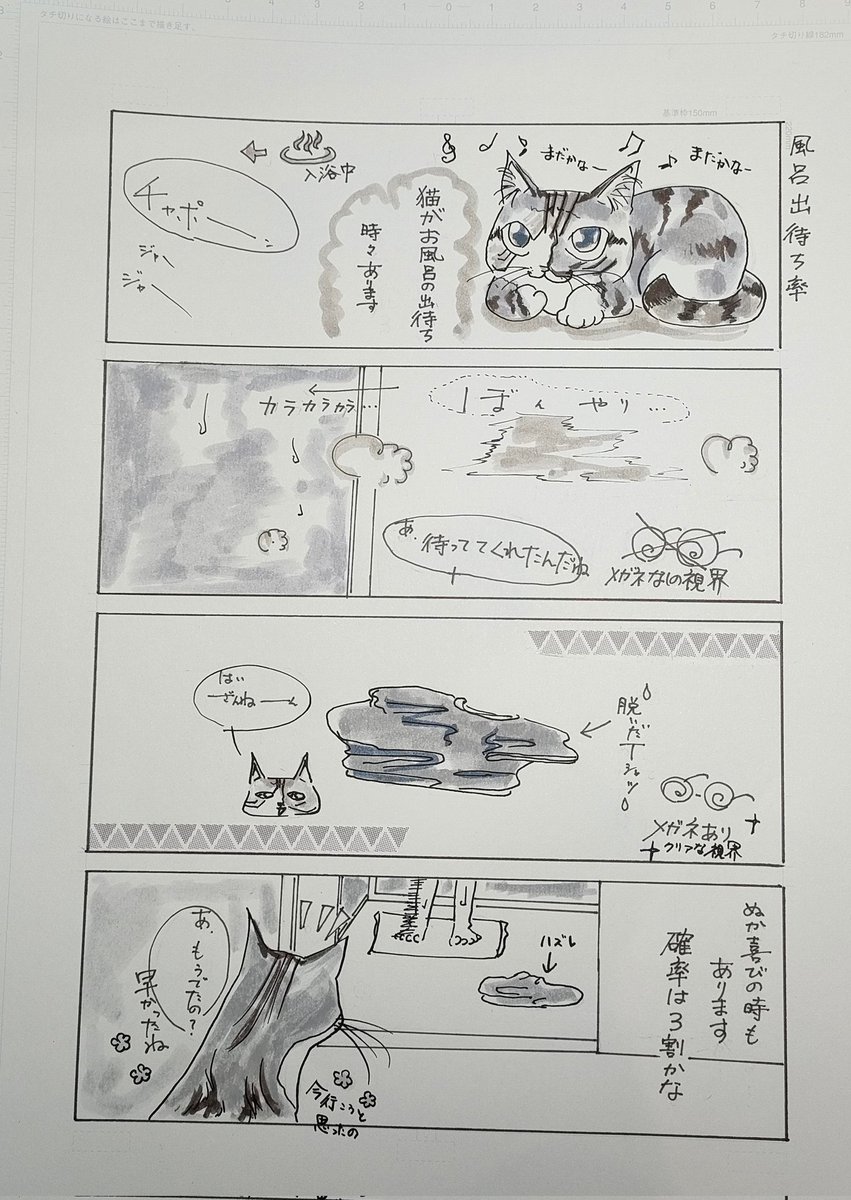 タチ切りになる絵はここまで描き足す。
タチ切り線182mm
基準枠150mm
風呂出待ち率
まだかなー
まだかなー
猫がお風呂の出待ち
時々あります
入浴中
チャポーン
ジャー
ジャー
ぼんやり…
カラカラカラ…
あ、待っててくれたんだね
メガネなしの視界
脱いだTシャツ!
メガネあり
クリアな視界
はい
ざんねーん
ぬか喜びの時も
あります
確率は3割かな
ハズレ
あ、もうでたの?
早かったね
今行こうと
思ったの